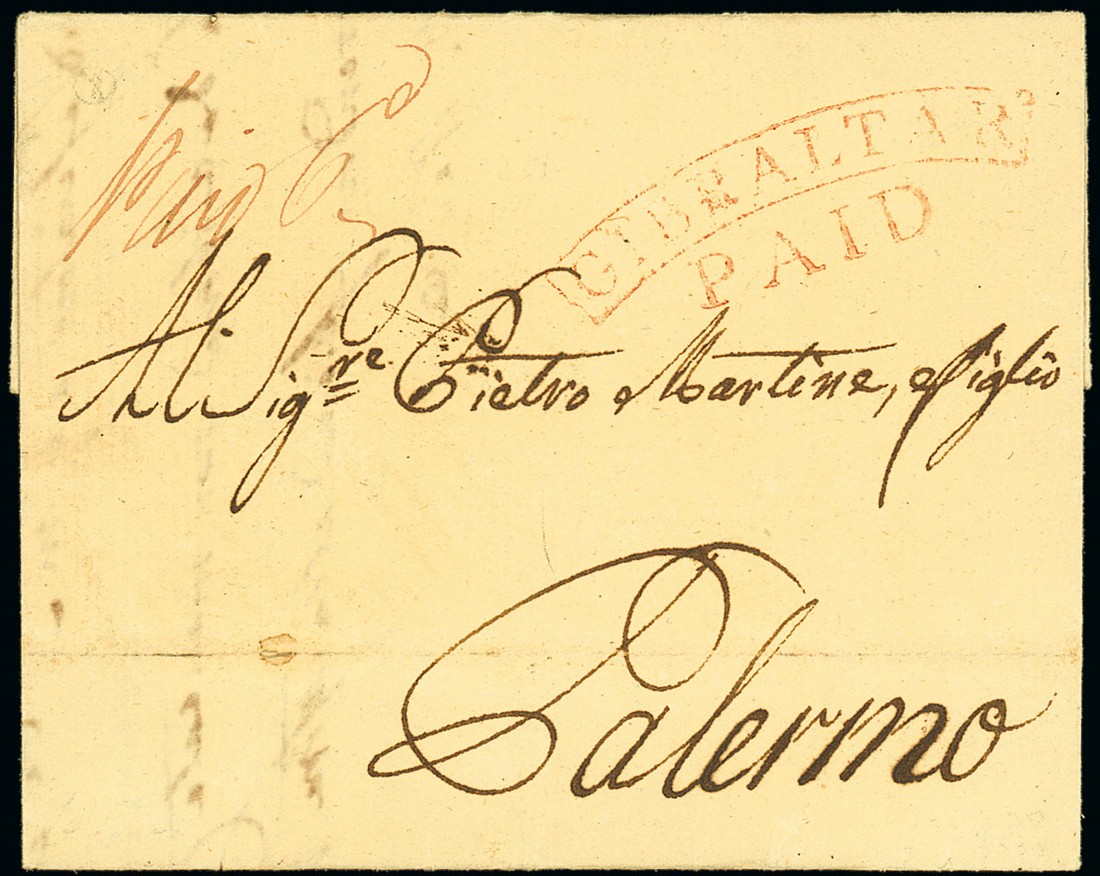 Paid 6d
GIBRALTAR
PAID
Al Sigre. Pietro Martine, e figlio
Palermo